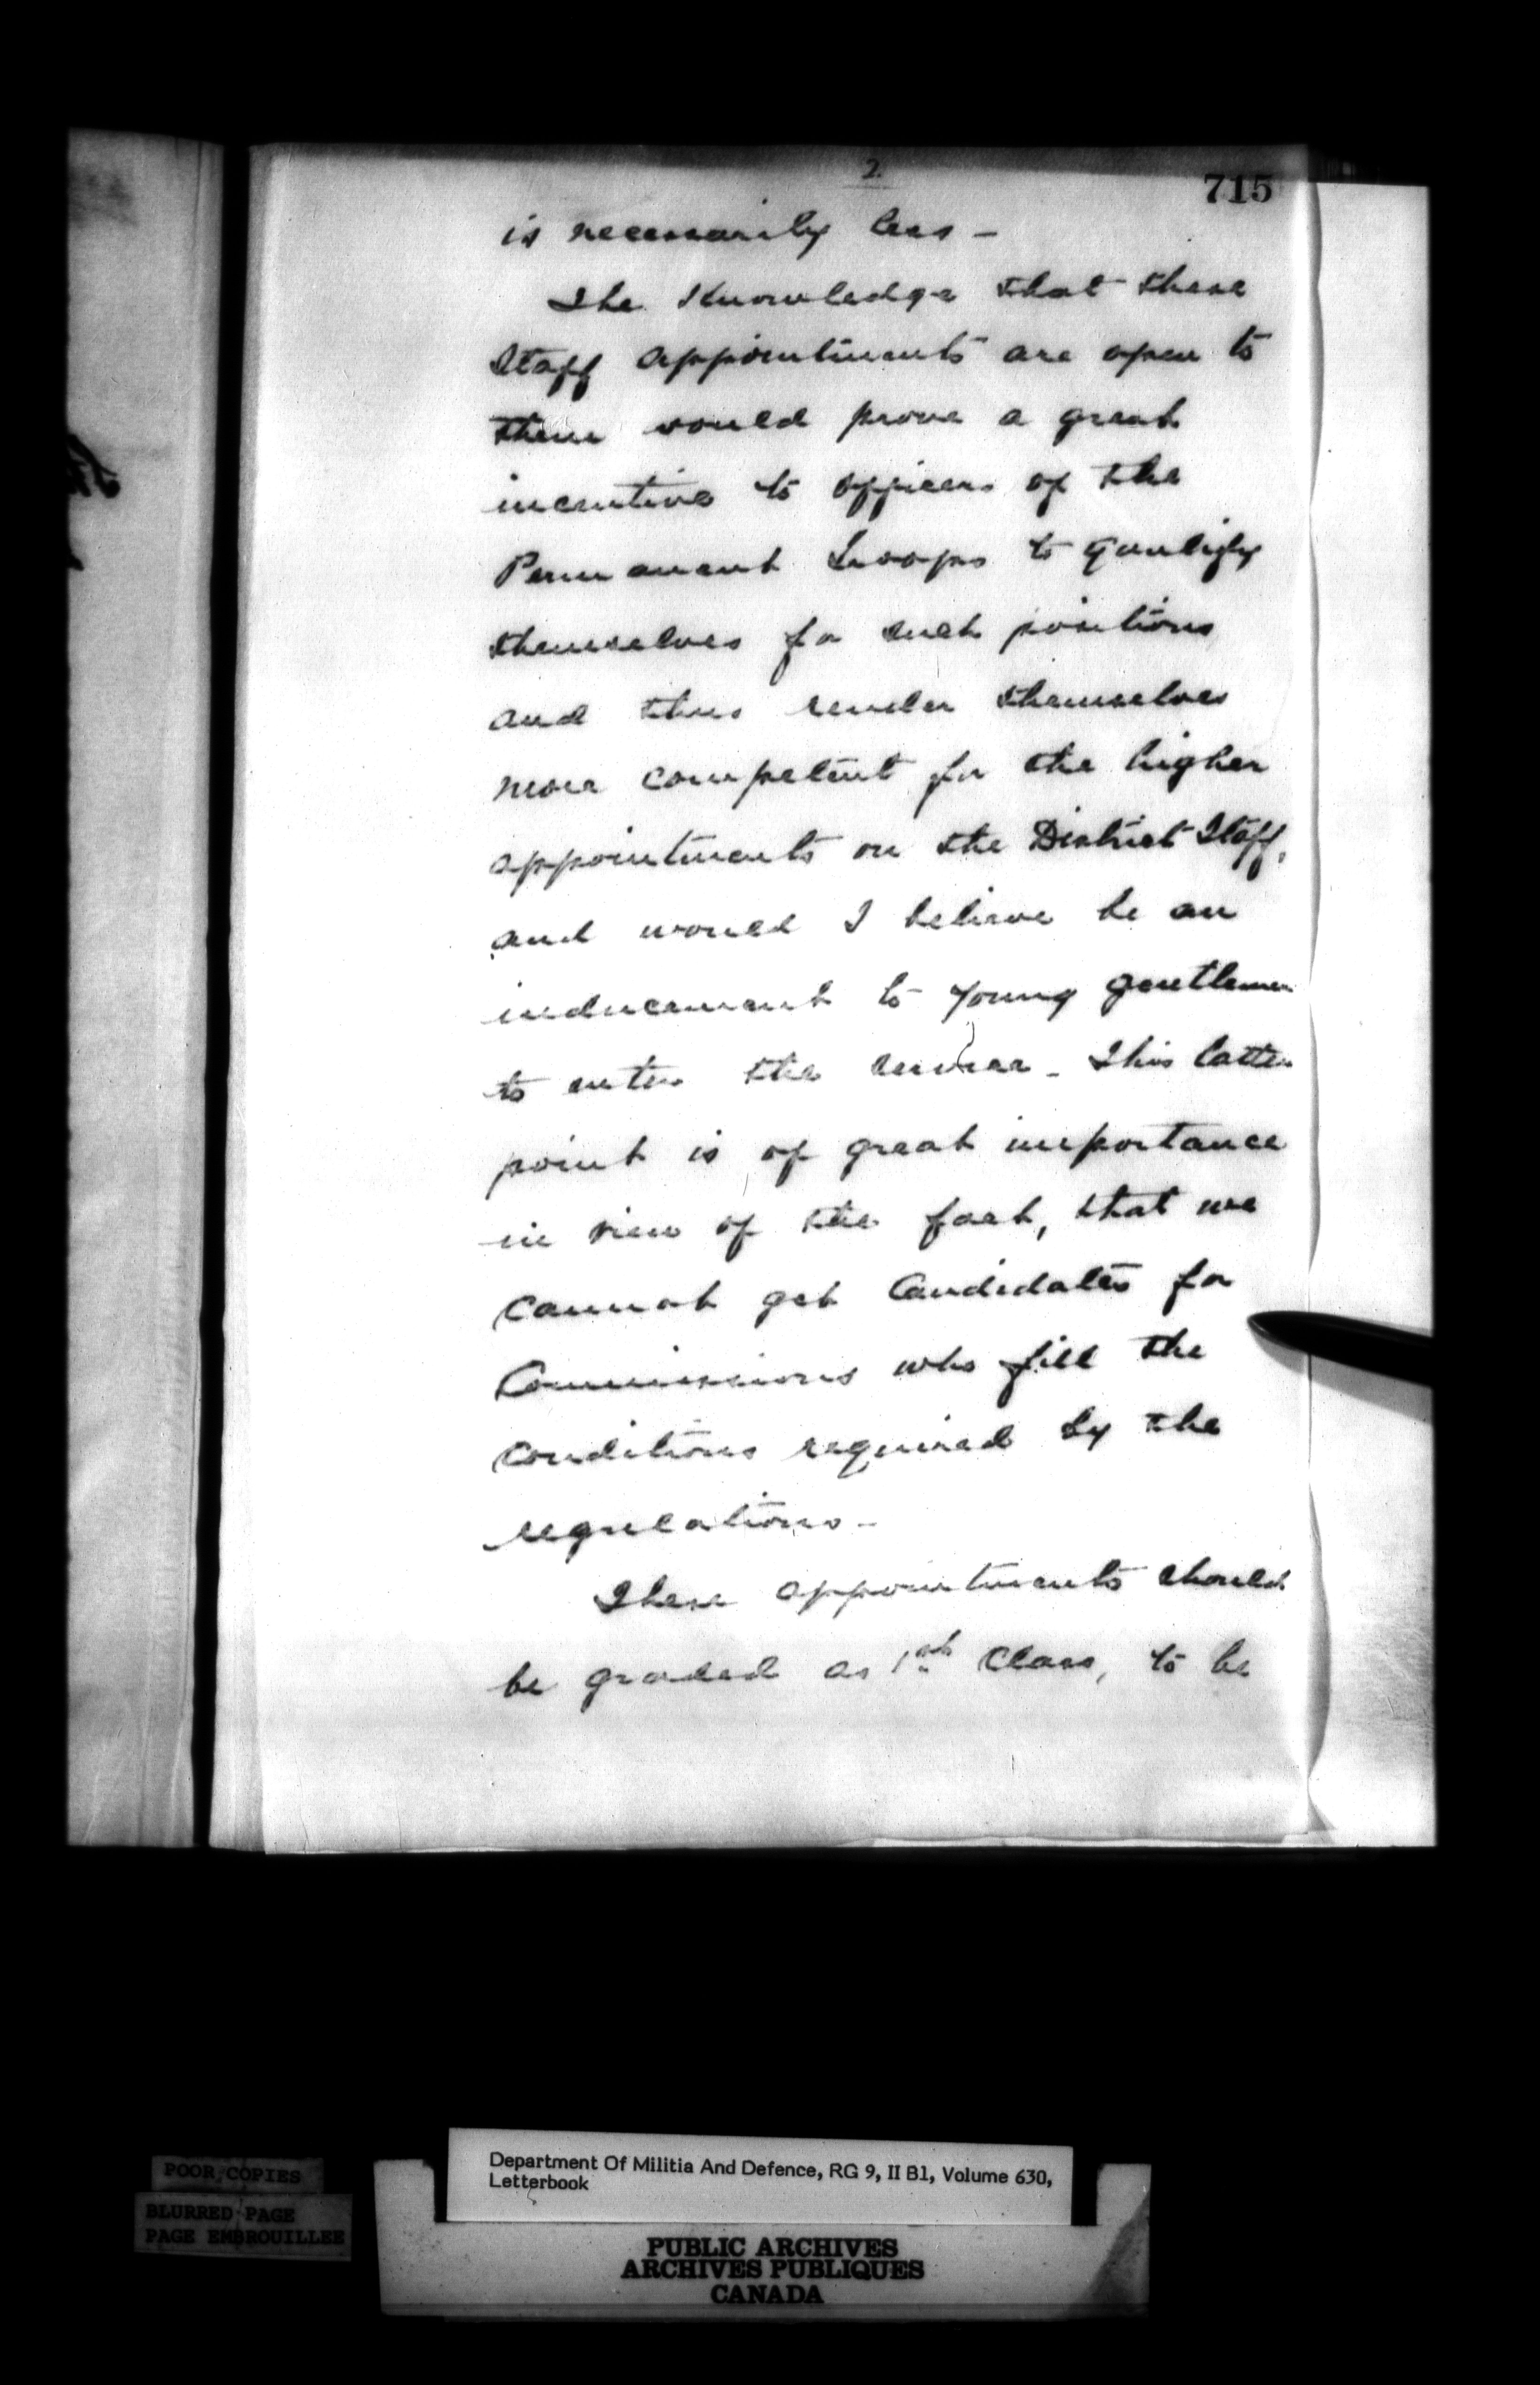 2.
715
is necessarily less –
The Knowledge that these
Staff appointments are open to
them would prove a great
incentive to officers of the
Permanent Troops to qualify
themselves for such positions
and thus render themselves
more competent for the higher
appointments on the District Staff,
and would I believe be an
inducement to young gentlemen
to enter the service – This latter
point is of great importance
in view of the fact, that we
cannot get Candidates for
Commissions who fill the
conditions required by the
regulations –
These appointments should
be graded as 1st Class, to be
POOR COPIES
BLURRED PAGE
PAGE EMBROUILLEE
Department Of Militia And Defence, RG 9, II B1, Volume 630,
Letterbook
PUBLIC ARCHIVES
ARCHIVES PUBLIQUES
CANADA